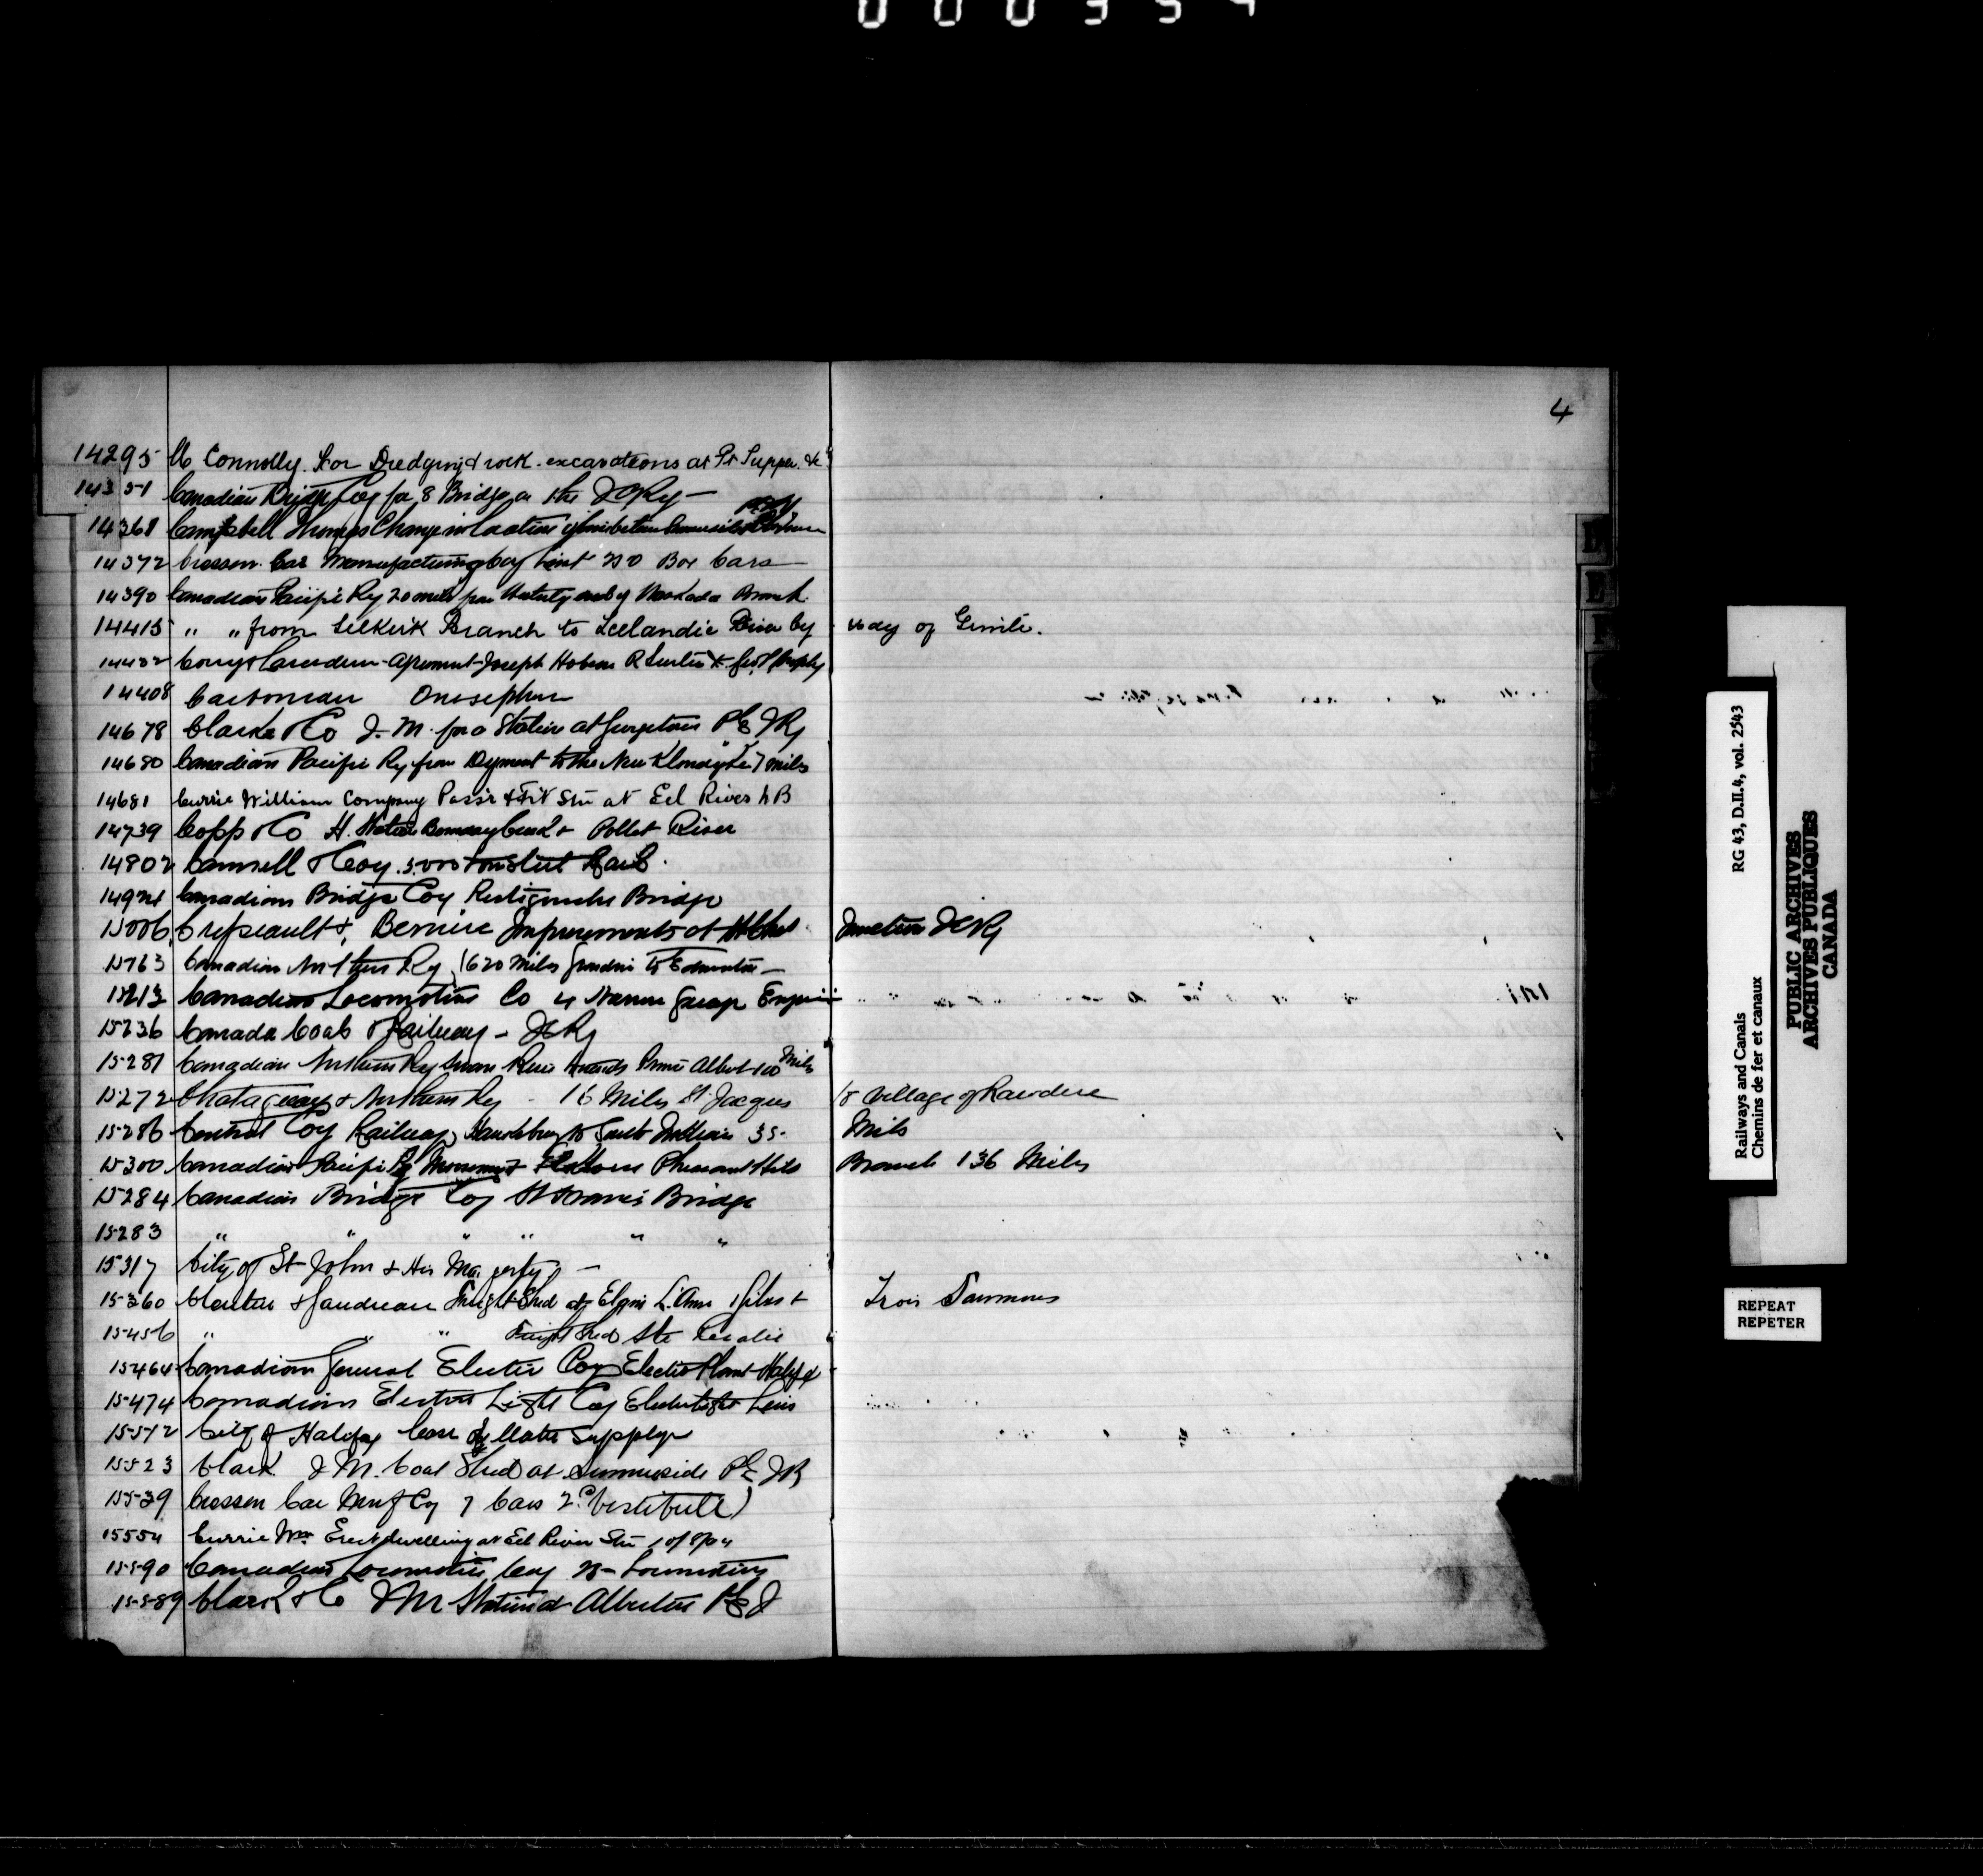 000354
4
14295 M Connolly. For Dredging & rock excavations at Pt Tupper &c
14351 Canadian Bridge Coy for 8 Bridge on the ICRy —
14368 Campbell Thomas Change in location of line between
14372 Crossen Car Manufacturing Coy Limt 250 Box Cars
14390 Canadian Pacific Ry 20 miles from Westerly end of Waskada Branch
14415 " " from Selkirk Branch to Icelandic River by way of Gimli.
14432 Agreement Joseph Hobson R &
14408 Carbonneau Onesephore
14678 Clark & Co J. M. for a Station at Georgetown PEIRy
14680 Canadian Pacific Ry from Dyment to the New Klondyke 7 miles
14681 Currie William Company Pass'r & Fr't Stn at Eel River NB
14739 Copp & Co H. Station Boundary Creek & Pollet River
14802 Cammell & Coy 5.000 tons steel Rails.
14924 Canadian Bridge Coy Restigouche Bridge
15006 & Bernier Improvements at St Chas Junction ICRy
15763 Canadian Northern Ry 620 Miles Grandview to Edmonton —
15213 Canadian Locomotive Co 4 Narrow Gauge Engines
15236 Canada Coals & Railway - ICRy
15281 Canadian Northern Ry Swan River towards Prince Albert 100 Miles
15272 Chataguay & Northern Ry - 16 Miles St. Jacques to Village of Rawdon
15286 Central Coy Railway, Hawkesbury to South Indian 35. Miles
15300 Canadian Pacific Ry Pheasant Hills Branch 136 Miles
15284 Canadian Bridge Coy St Francis Bridge
15283 " " " " " "
15317 City of St John & His Majesty —
15360 Cloutier & Gaudreau Freight Shed at Elgin L'Anse à Giles & Trois Saumons
15456 " " " Freight Shed Ste Rosalie
15464 Canadian General Electric Coy Electric Plant Halifax
15474 Canadian Electric Light Coy Electric light Levis
15512 City of Halifax Water Supply
15523 Clark J M. Coal Shed at Summerside PEIR
15539 Crossen Car Manf Coy 7 Cars 2nd (Vestibule)
15554 Currie Wm Erect dwelling at Eel River Stn
15590 Canadian Locomotive Coy 25 Locomotives
15589 Clark & Co J M Station at Alberton PEI
Railways and Canals RG 43, D.II.4, vol. 2543
Chemins de fer et canaux
PUBLIC ARCHIVES
ARCHIVES PUBLIQUES
CANADA
REPEAT
REPETER